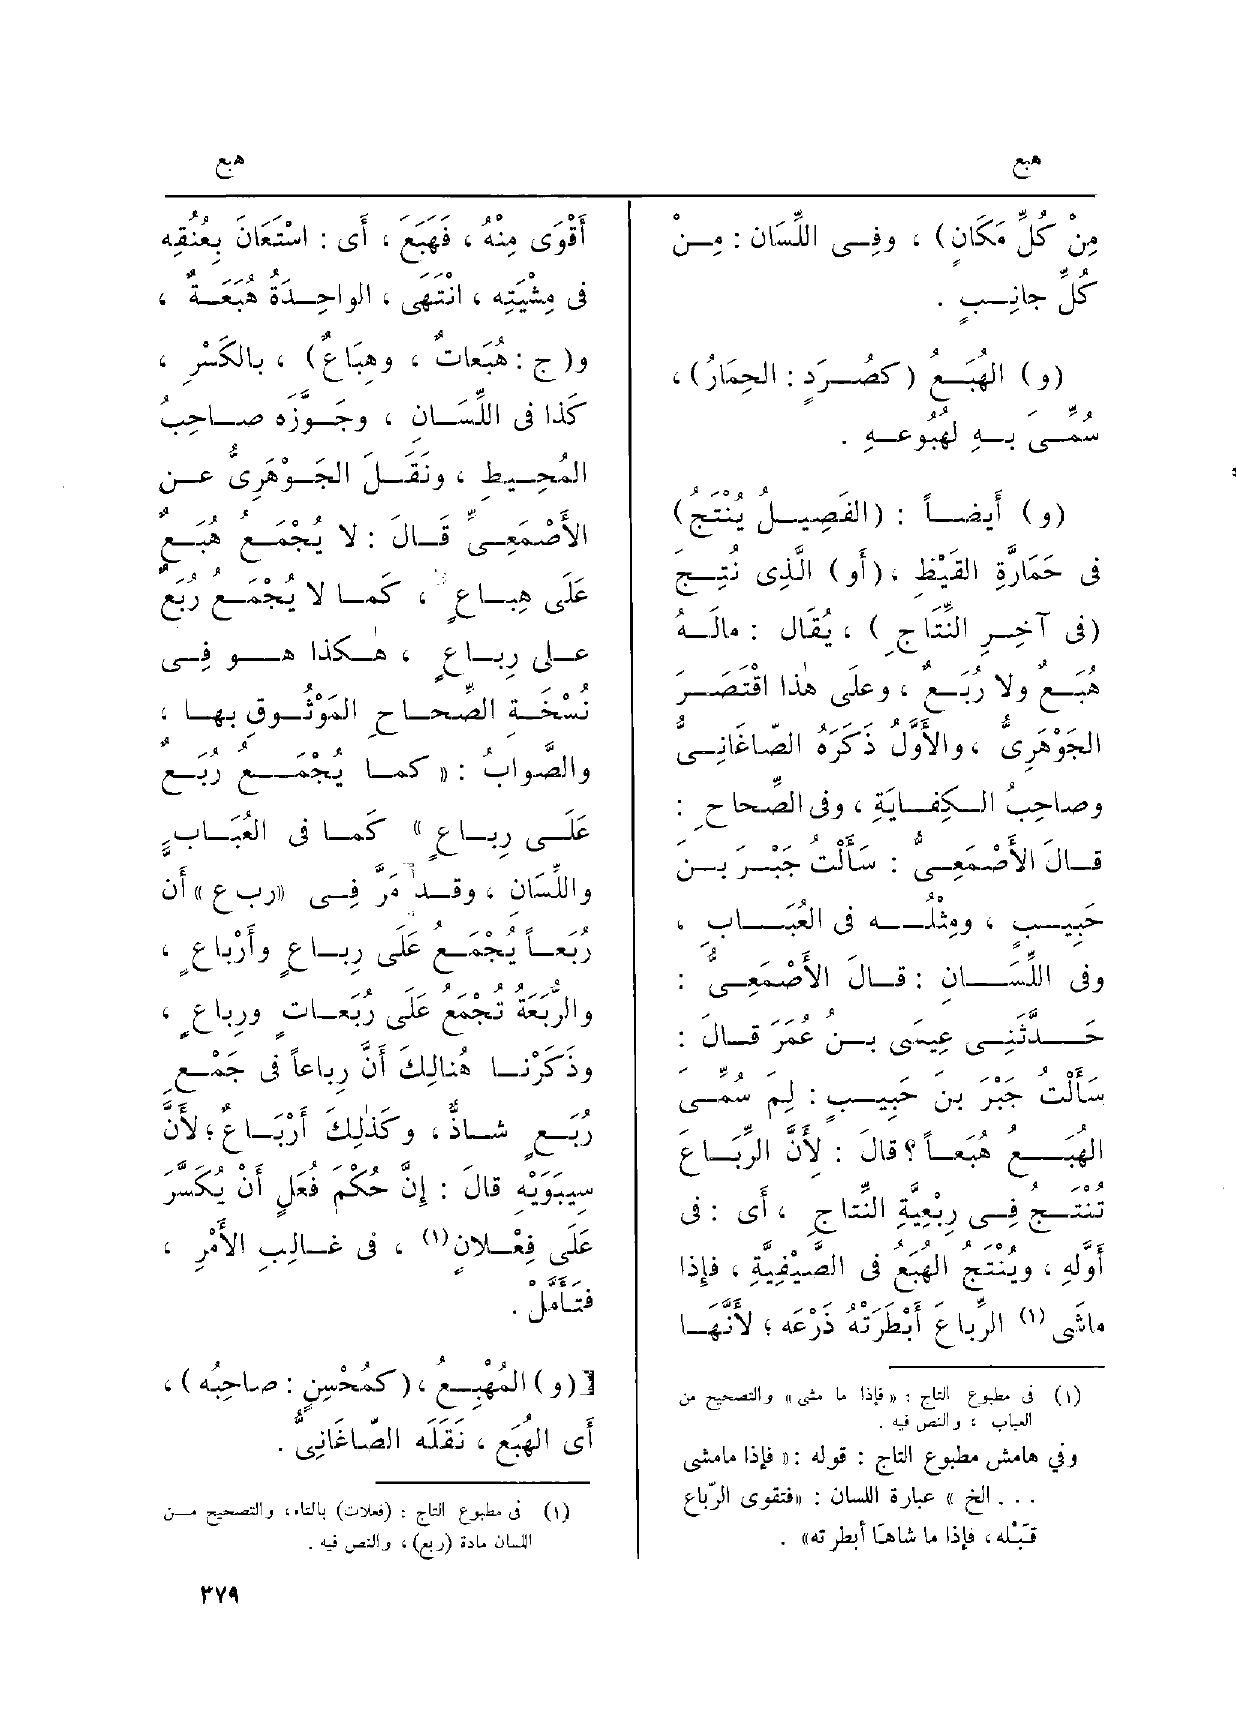 هبع
هبع
مِنْ كُلِّ مَكَانٍ) ، وفِــى اللِّسَان : مِــنْ
كُلِّ جانِــبٍ .
(و) الهُبَــعُ (كصُــرَدٍ : الحِمَارُ) ،
سُمِّــىَ بــهِ لِهُبُوعــهِ .
(و) أَيضــاً : (الفَصِيــلُ يُنْتَجُ)
فى حَمَارَّةِ القَيْظِ ، (أو) الَّذِى نُتِــجَ
(فى آخِــرِ النِّتَاجِ ) ، يُقَال : مالَــهُ
هُبَــعٌ ولا رُبَــعٌ ، وعلى هٰذا اقْتَصَــرَ
الجَوْهَرِىُّ ، والأَوَّلُ ذَكَرَهُ الصّاغَانِــىُّ
وصاحِبُ الــكِفــايَةِ ، وفى الصِّحاحِ :
قــالَ الأَصْمَعِــىُّ : سَأَلْتُ جَبْــرَ بــن
حَبِيــبٍ ، ومِثْلُــــه فى العُبَــــاب ،
وفى اللِّسَــــان : قــالَ الأَصْمَعِــىُّ :
حَــــدَّثَنِــى عِيسَى بــنُ عُمَرَ قــالَ :
سَأَلْتُ جَبْرَ بنَ حَبِيــبٍ : لِمَ سُمِّــىَ
الهُبَــــعُ هُبَعــاً ؟ قالَ : لأَنَّ الرِّبَــاعَ
تُنْتَــجُ فِــى رِبْعِيَّةِ النِّتاجِ ، أَى : فى
أَوَّلهِ ، ويُنْتَجُ الهُبَعُ فى الصَّيْفِيَّةِ ، فإِذا
ماشَى (١) الرِّباعَ أَبْطَرَتْهُ ذَرْعَه ؛ لأَنَّهــا
(١) فى مطبوع التاج : « فإذا ما مشى » والتصحيح من
العباب ، والنص فيه .
وفي هامش مطبوع التاج : قوله : « فإذا مامشى
. . . الخ » عبارة اللسان : « فتقوى الرّباع
قَبْله ، فإذا ما شاهَا أبطرته » .
أَقْوَى مِنْهُ ، فَهَبَع ، أى : اسْتَعَانَ بِعُنُقِه
فى مِشْيَتِه ، انْتَهى ، الواحِــدَةُ هُبَعَــةٌ ،
و( ج : هُبَعاتٌ ، وهِبَاعٌ) ، بالكَسْرِ ،
كَذا فى اللِّسَــان ، وجَــوَّزَه صــاحِبُ
المُحِــيطِ ، ونَقَــلَ الجَــوْهَرِىُّ عــن
الأَصْمَعِــىِّ قَــالَ : لا يُجْمَــعُ هُبَــعٌ
عَلَى هِبــاعٍ ، كَمــا لا يُجْمَــعُ رُبَعٌ
عــلى رِبــاعٍ ، هــٰكذا هــــو فِــى
نُسْخَــةِ الصِّحــاحِ المَوْثُــوقِ بهــا ،
والصَّوابُ : « كمــا يُجْمَــــعُ رُبَــعٌ
عَلَــى رِبــاعٍ » كَمــا فى العُبَــابِ
واللِّسَانِ ، وقــد مَرَّ فِــى « ر ب ع » أَن
رُبَعــاً يُجْمَــعُ عَلَى رِبــاعٍ وأَرْباعٍ ،
والرُّبَعَةُ تُجْمَعُ عَلَى رُبَعــاتٍ ورِباعٍ ،
وذَكَرْنــا هُنالِكَ أَنَّ رِباعاً فى جَمْــعِ
رُبَــعٍ شــاذٌّ ، وكَذٰلِكَ أَرْبَــاعٌ ؛ لأَنَّ
سِيبَوَيْهِ قالَ : إِنَّ حُكْمَ فُعَلٍ أَنْ يُكَسَّرَ
عَلَى فِعْــلانٍ (١) ، فى غــالِبِ الأَمْرِ ،
فتَأَمَّلْ .
[(و) المُهْبِــعُ ، (كمُحْسِنٍ : صاحِبُه ) ،
أَى الهُبَع ، نَقَلَه الصّاغَانِىُّ .
(١) فى مطبوع التاج : (فعلات) بالتاء ، والتصحيح مــن
اللسان مادة (ربع) ، والنص فيه .
٣٧٩